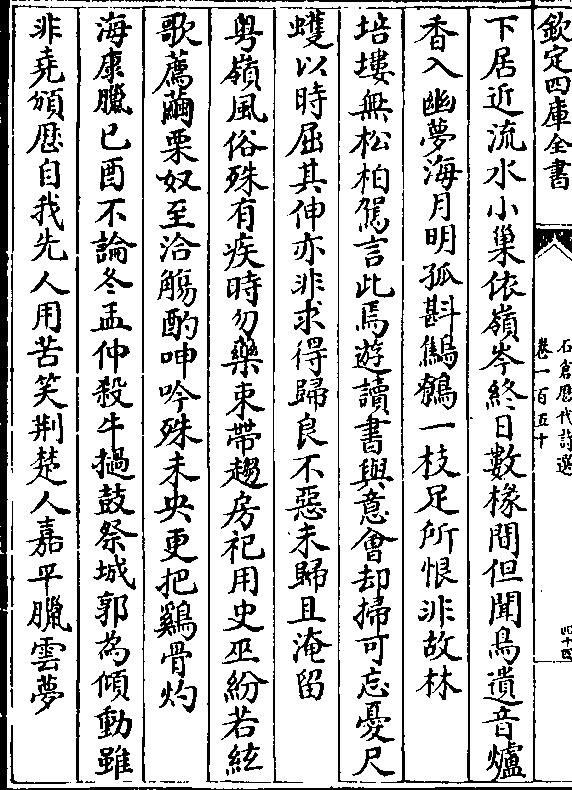 欽定四庫全書
石倉歷代詩選
卷一百五十
四十四
下居近流水小巢依嶺岑終日數椽間但聞鳥遺音爐
香入幽夢海月明孤斟鷦鷯一枝足所恨非故林
培塿無松柏駕言此焉遊讀書與意會却掃可忘憂尺
蠖以時屈其伸亦非求得歸良不惡未歸且淹留
粤嶺風俗殊有疾時勿藥束帶趨房祀用史巫紛若絃
歌薦繭栗奴至洽觴酌呻吟殊未央更把鷄骨灼
海康臘已酉不論冬孟仲殺牛撾鼓祭城郭為傾動雖
非堯頒歴自我先人用苦笑荆楚人嘉平臘雲夢